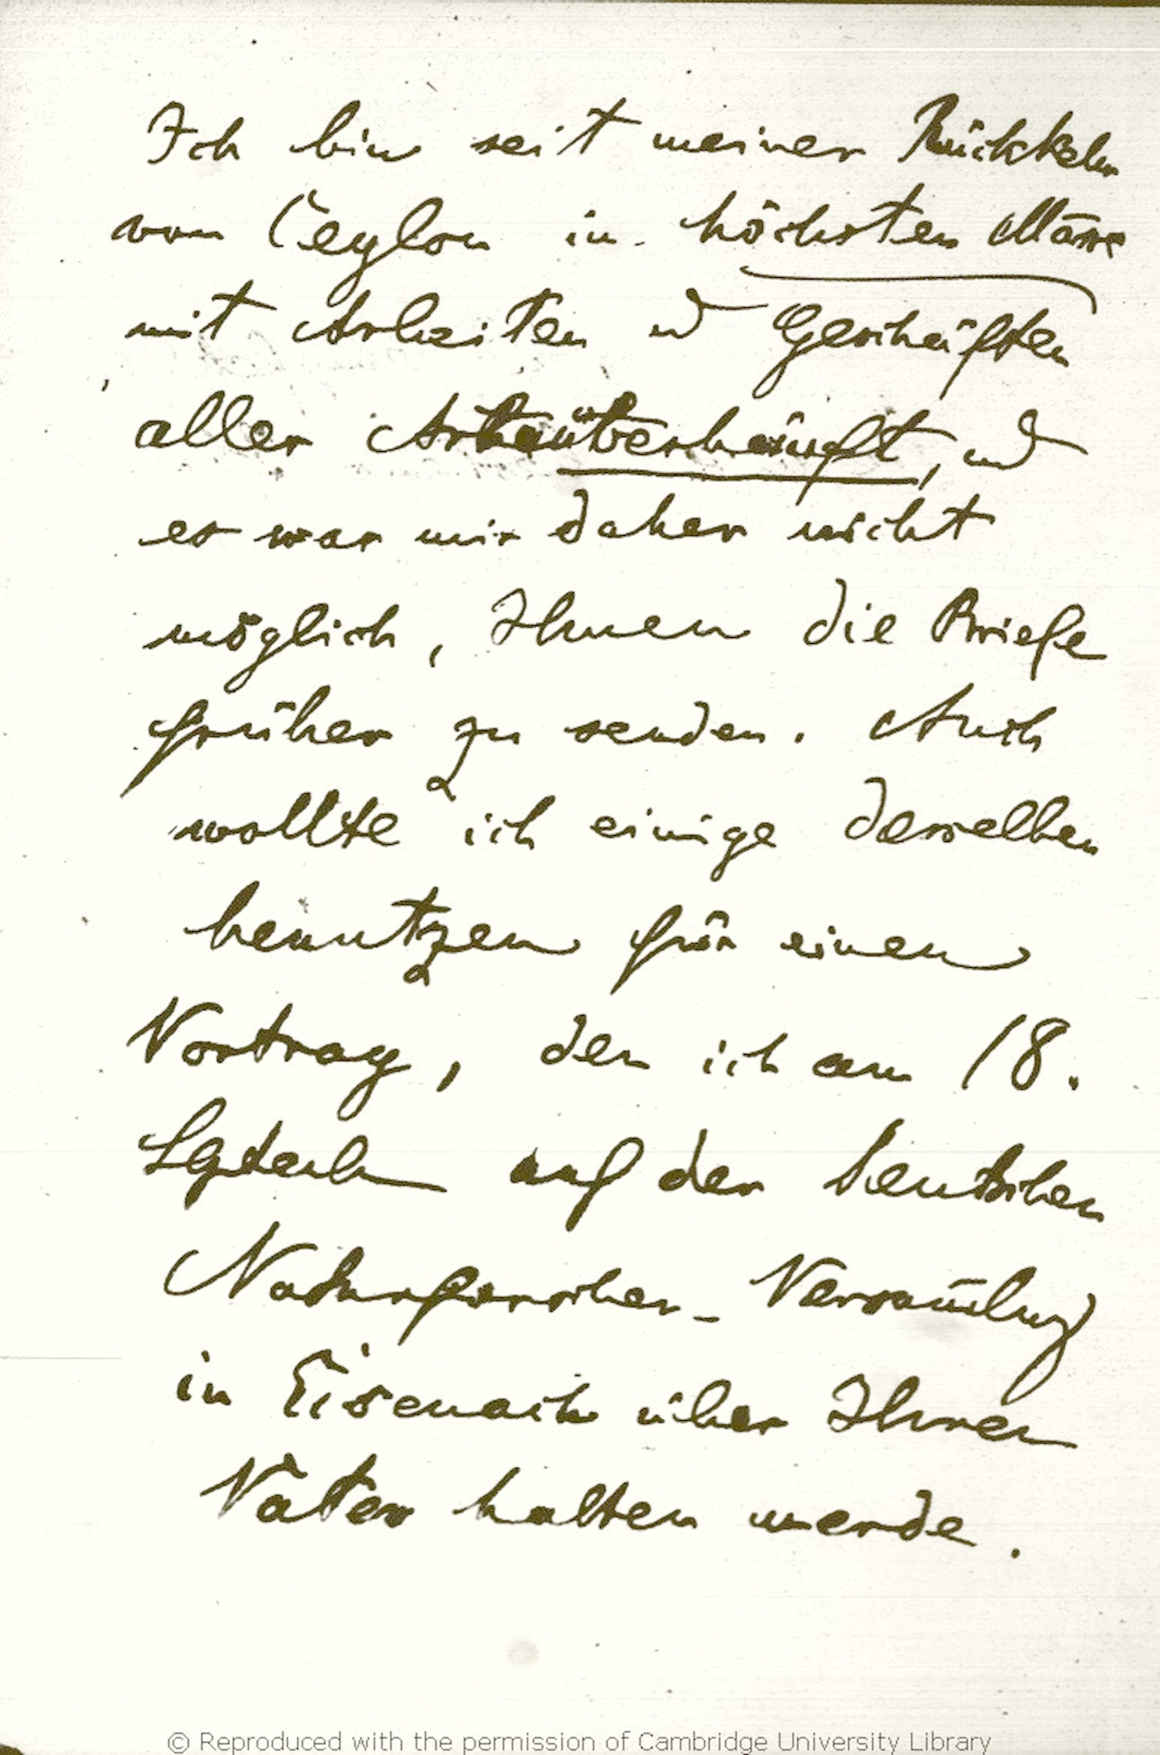 Ich bin seit meiner Rückkehr
von Ceylon in höchsten Māsse
mit Arbeiten ud Geschäften
aller Art überhäuft, ud
es war mir daher nicht
möglich, Ihnen die Briefe
früher zu senden. Auch
wollte ich einige derselben
benutzen für einen
Vortrag, den ich am 18.
Septemb auf der Deutschen
Naturforscher-Versam̄lung
in Eisenach über Ihren
Vater halten werde.
© Reproduced with the permission of Cambridge University Library